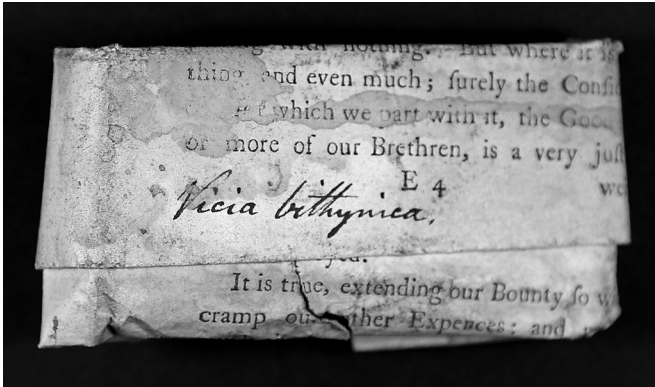 with nothing. But where it is
thing and even much; ſurely the Conſi
which we part with it, the Good
or more of our Brethren, is a very juſt
E 4
we
Vicia bithynica.
It is true, extending our Bounty ſo w
cramp our other Expences: and